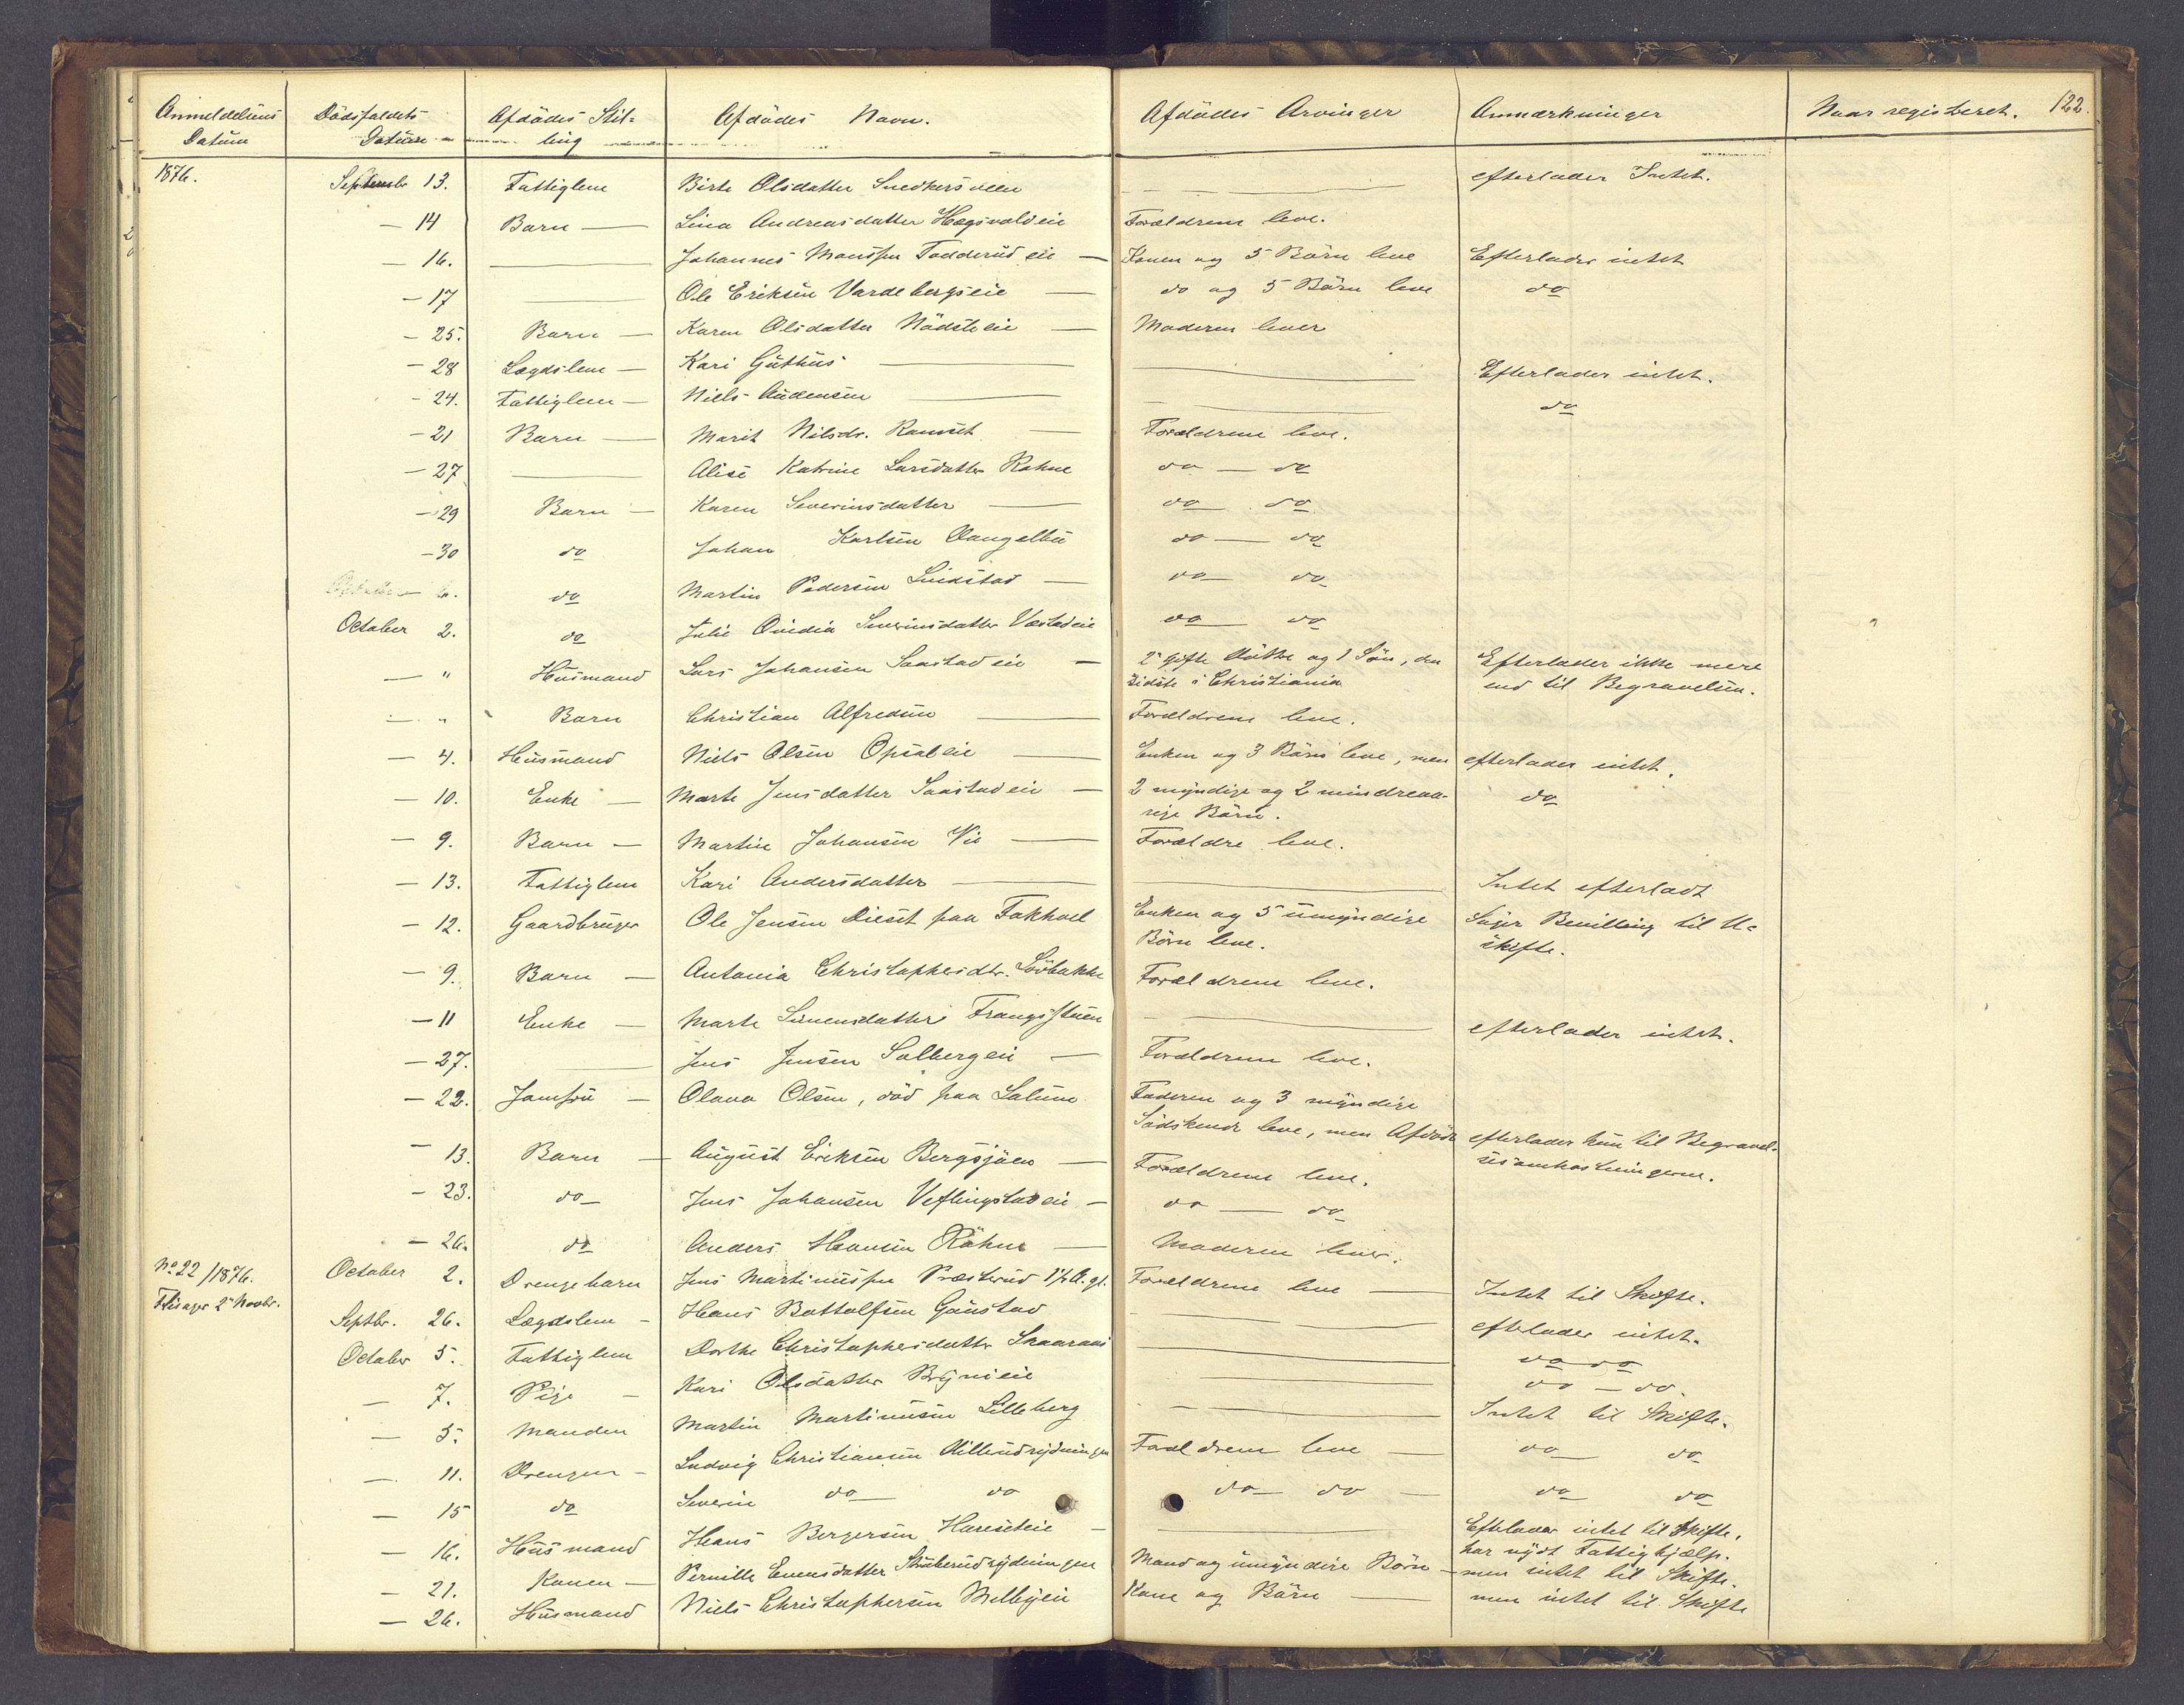 Anmeldelsens Datum | Dödsfaldets Datum | Afdödes Stilling | Afdödes Navn. | Afdödes Arvinger | Anmærkninger | Naar registreret. 122.
1876. | Septembr 13. | Fattiglem | Birte Olsdatter | — | efterlader Intet.
— 14 | Barn — | Lina Andreasdatter Hagsvoldeie | Forældrene leve.
— 16. | — | Johannes Monssen Fodderud eie — | Konen og 5 Börn leve | Efterlader intet
— 17 | — | Ole Eriksen Vardebergseie — | do og 5 Börn leve | do
— 25. | Barn — | Karen Olsdatter Nödsteeie — | Moderen lever
— 28 | Lægdslem — | Kari Guthus — | — | Efterlader intet.
— 24. | Fattiglem — | Niels Audensen — | — | do
— 21 | Barn — | Marit Nilsdr. Ramset — | Forældrene leve.
— 27 | — | Alise Katrine Larsdatter Rohne | do — do
— 29 | Barn — | Karen Severinsdatter — | do do
— 30 | do | Johan Karlsen | do — do
— 6. | do | Martin Pedersen Lindstad — | do do
October 2. | do | Julie Severinsdatter | do do
— " | Husmand | Lars Johansen Saastad eie — | 2 gifte Döttre og 1 Sön, den | Efterlader ikke mere
sidste i Christiania | end til Begravelsen.
— " | Barn | Christian Alfredsen — | Forældrene leve.
— 4. | Husmand | Niels Olsen Opsaleie — | Enken og 3 Börn leve, men | efterlader intet.
— 10. | Enke — | Marte Jensdatter Saastadeie — | 2 myndige og 2 mindreaa- | do
rige Börn.
— 9. | Barn — | Martin Johansen Vie — | Forældre leve.
— 13. | Fattiglem | Kari Andersdatter — | — | Intet efterladt
— 12. | Gaardbruger | Ole Jensen Dieset paa Fokhoel | Enken og 5 umyndige | Söger Bevilling til U-
Börn leve. | skifte.
— 9. | Barn — | Antonia Christophersdtr. Lövbakke | Forældrene leve.
— 11 | Enke — | Marte Simensdatter Frangsstuen | — | efterlader intet.
— 27. | — | Jens Jensen Solbergeie — | Forældrene leve.
— 22. | Jomfru — | Olava Olsen, död paa Salum | Faderen og 3 myndige
Södskende leve, men Afdöde | efterlader kun til Begravel-
— 13. | Barn — | August Eriksen Bergsjöen — | Forældrene leve. | sesomkostningerne.
— 23. | do — | Jens Johansen Veflingstadeie — | do — do
— 26. | do | Anders Hansen Röhne — | Moderen lever.
No 22/1876. | October 2. | Drengebarn | Jens Martinussen Præsterud 1½ A. gl. | Forældrene leve — | Intet til Skifte.
Flisager 2 Novbr. | Septbr. 26. | Lægdslem — | Hans Bottolfsen Gaustad | — | efterlader intet.
October 5. | Fattiglem | Dorthe Christophersdatter | — | do do
— 7. | Pige — | Kari Olsdatter Brynieie | — | do — do.
— 5. | Manden | Martin Martinusen Lilleberg | — | Intet til Skifte.
— 11. | Drengen — | Ludvig Christiansen | Forældrene leve — | do do
— 15 | do | Severin do do | do do — | do do
— 16. | Husmand | Hans Bergersen Hareseteie — | — | Efterlader intet til Skifte.
har nydt Fattighjælp.
— 21. | Konen — | Pernille Evensdatter Stuberudrydningen | Mand og umyndige Börn — | men intet til Skifte.
— 26. | Husmand | Niels Christophersen Melbyeie | Kone og Börn — | men intet til Skifte